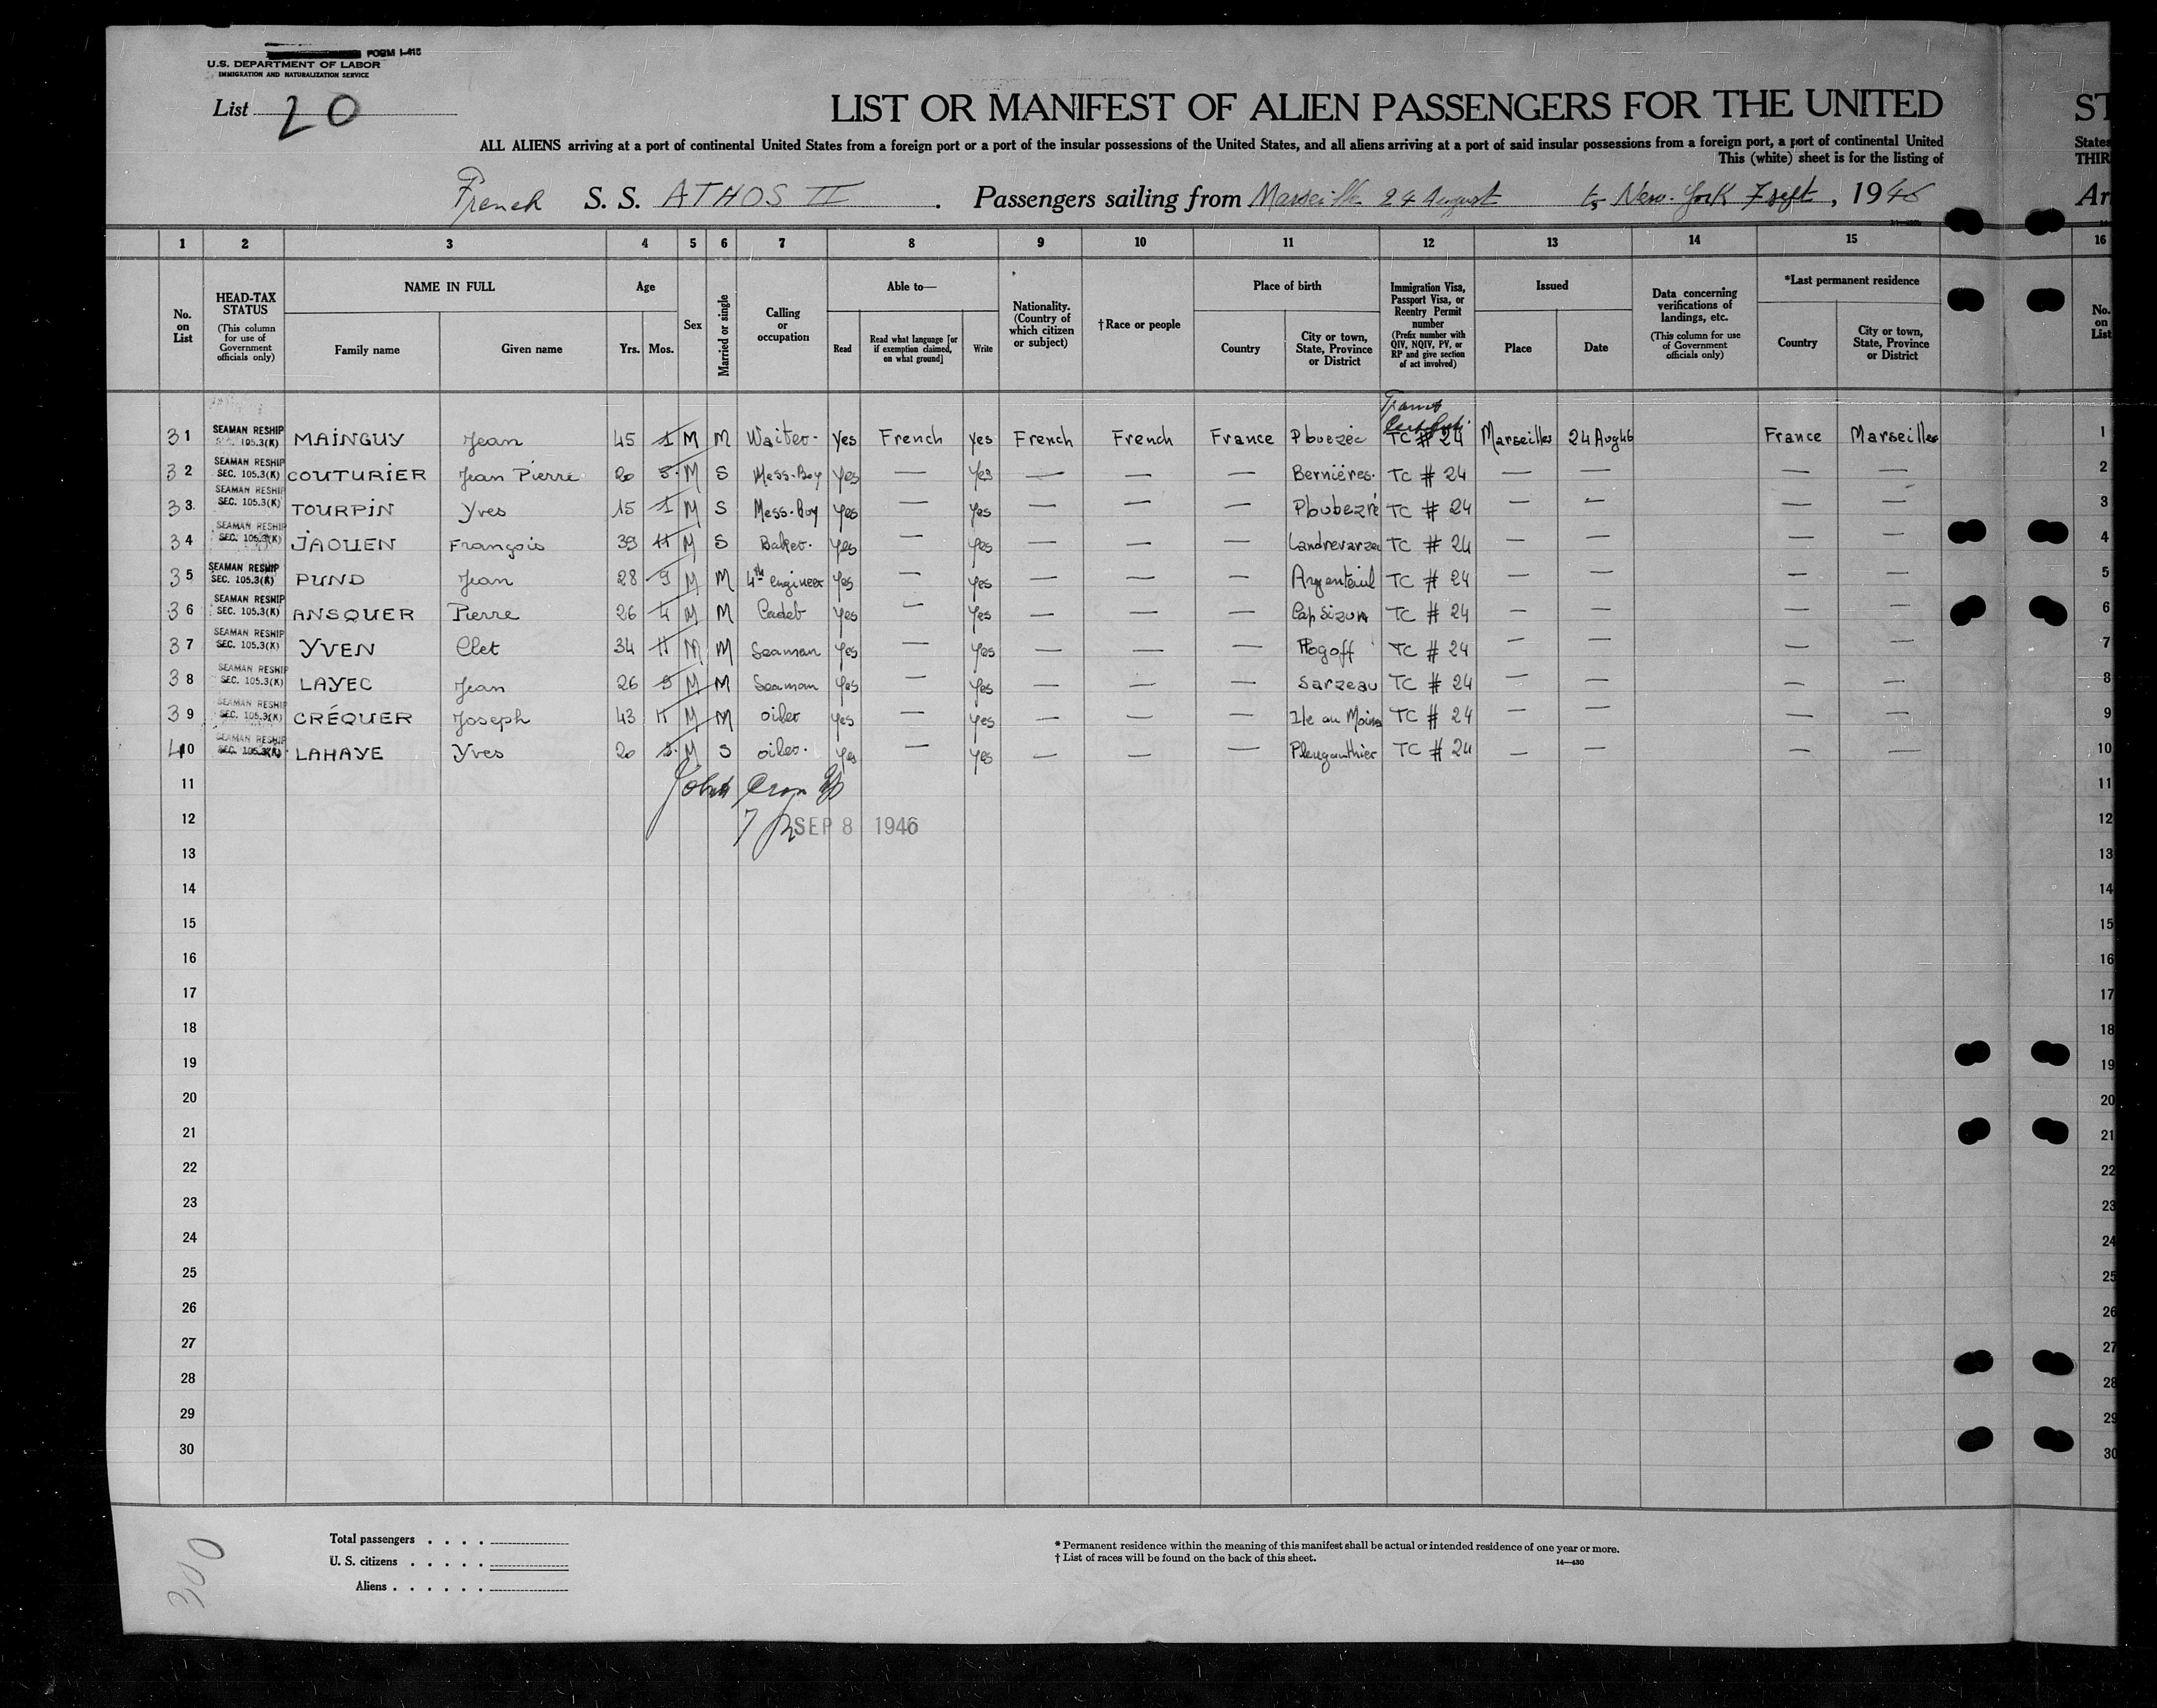 FORM I-415
U.S. DEPARTMENT OF LABOR
IMMIGRATION AND NATURALIZATION SERVICE
List 20
LIST OR MANIFEST OF ALIEN PASSENGERS FOR THE UNITED ST
ALL ALIENS arriving at a port of continental United States from a foreign port or a port of the insular possessions of the United States, and all aliens arriving at a port of said insular possessions from a foreign port, a port of continental United States
This (white) sheet is for the listing of THIR
French S. S. ATHOS II . Passengers sailing from Marseille 24 August to New-York 7 sept, 1946 Ar
1 2 3 4 5 6 7 8 9 10 11 12 13 14 15 16
No. on List
HEAD-TAX STATUS
(This column for use of Government officials only)
NAME IN FULL
Family name Given name
Age
Yrs. Mos.
Sex
Married or single
Calling or occupation
Able to—
Read Read what language [or if exemption claimed, on what ground] Write
Nationality. (Country of which citizen or subject)
†Race or people
Place of birth
Country City or town, State, Province or District
Immigration Visa, Passport Visa, or Reentry Permit number
(Prefix number with QIV, NQIV, PV, or RP and give section of act involved)
Issued
Place Date
Data concerning verifications of landings, etc.
(This column for use of Government officials only)
*Last permanent residence
Country City or town, State, Province or District
No. on List
Transit
31 SEAMAN RESHIP SEC. 105.3(K) MAINGUY Jean 45 1 M M Waiter. Yes French Yes French French France Plouezec TC # 24 Marseilles 24 Aug 46 France Marseilles 1
32 SEAMAN RESHIP SEC. 105.3(K) COUTURIER Jean Pierre 20 5. M S Mess-Boy Yes — Yes — — — Bernières. TC # 24 — — — — 2
33 SEAMAN RESHIP SEC. 105.3(K) TOURPIN Yves 15 1 M S Mess-Boy Yes — Yes — — — Ploubezré TC # 24 — — — — 3
34 SEAMAN RESHIP SEC. 105.3(K) JAOUEN François 39 11 M S Baker. Yes — Yes — — — Landrevarzec TC # 24 — — — — 4
35 SEAMAN RESHIP SEC. 105.3(K) PUND Jean 28 9 M M 4th engineer Yes — Yes — — — Argenteuil TC # 24 — — — — 5
36 SEAMAN RESHIP SEC. 105.3(K) ANSQUER Pierre 26 4 M M Cadet Yes — Yes — — — Cap Sizun TC # 24 — — — — 6
37 SEAMAN RESHIP SEC. 105.3(K) YVEN Clet 34 11 M M Seaman Yes — Yes — — — Plogoff TC # 24 — — — — 7
38 SEAMAN RESHIP SEC. 105.3(K) LAYEC Jean 26 9 M M Seaman Yes — Yes — — — Sarzeau TC # 24 — — — — 8
39 SEAMAN RESHIP SEC. 105.3(K) CRÉQUER Joseph 43 11 M M oiler Yes — Yes — — — Ile au Moine TC # 24 — — — — 9
40 SEAMAN RESHIP SEC. 105.3(K) LAHAYE Yves 20 9. M S oiler. Yes — Yes — — — Pleuganthier TC # 24 — — — — 10
11 11
12 SEP 8 1946 12
13 13
14 14
15 15
16 16
17 17
18 18
19 19
20 20
21 21
22 22
23 23
24 24
25 25
26 26
27 27
28 28
29 29
30 30
300
Total passengers . . . .
U. S. citizens . . . . .
Aliens . . . . . .
* Permanent residence within the meaning of this manifest shall be actual or intended residence of one year or more.
† List of races will be found on the back of this sheet.
14—430